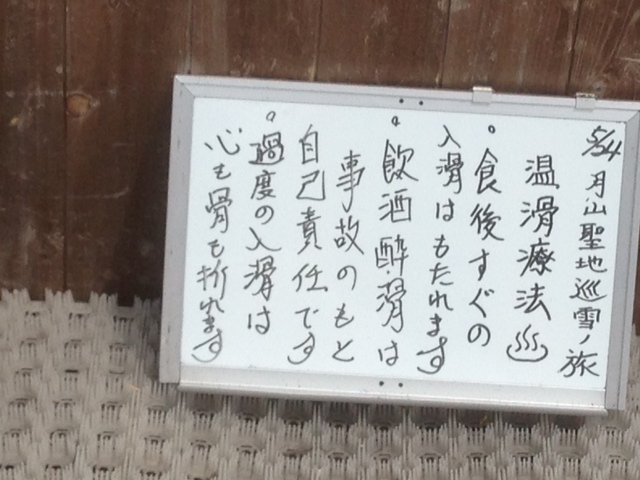 5/24 月山聖地巡雪ノ旅
温滑療法♨
。食後すぐの
入滑はもたれます
。飲酒酔滑は
事故のもと
自己責任です
。過度の入滑は
心も骨も折れます